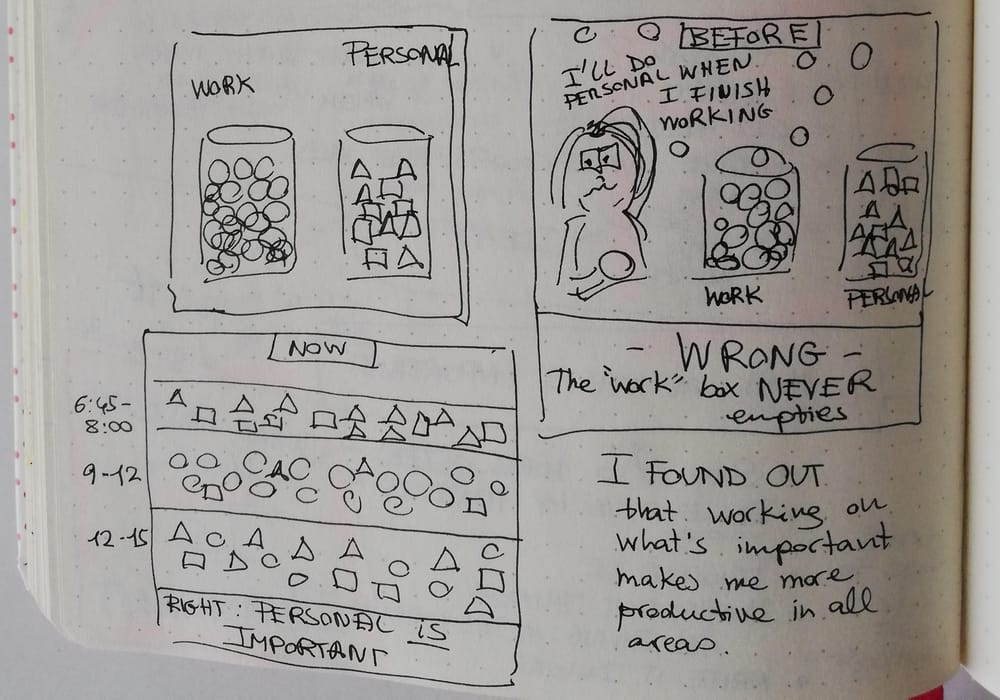 WORK
PERSONAL
BEFORE
I'LL DO
PERSONAL WHEN
I FINISH
WORKING
WORK
PERSONAL
- WRONG -
The "work" box NEVER
empties
NOW
6:45-
8:00
9-12
12-15
RIGHT: PERSONAL IS
IMPORTANT
I FOUND OUT
that working on
what's important
makes me more
productive in all
areas.